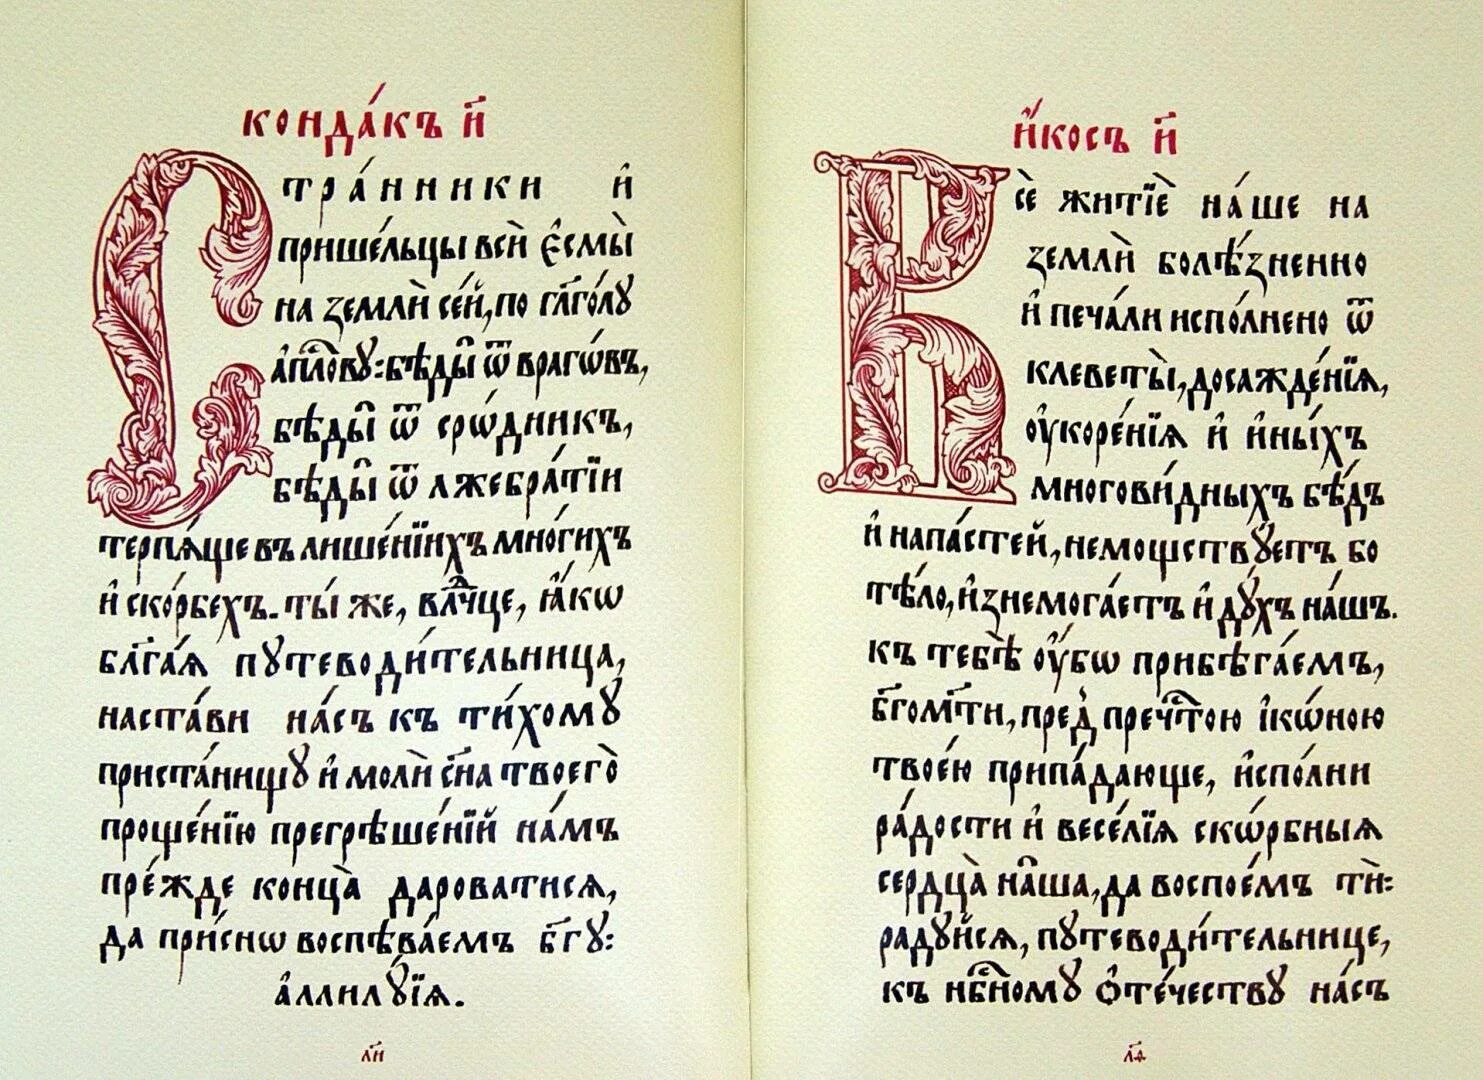 конда́къ и҃
Стра́нники и҆
прише́льцы всѝ є҆смы̀
на землѝ се́й, по гл҃го́лу
а҆пⷭ҇лову: бѣды̑ ѿ врагѡ́въ,
бѣды̑ ѿ срѡ́дникъ,
бѣды̑ ѿ лжебра́тїи
терпѧ́ще въ лише́нїихъ мно́гихъ
и҆ ско́рбехъ. ты́ же, влⷣчце, ꙗ҆́кѡ
бл҃га́ѧ путеводи́тельница,
наста́ви на́съ къ ти́хому
приста́нищу и҆ молѝ сн҃а твоего̀
проще́нїю прегрѣше́нїй на́мъ
пре́жде конца̀ дароватисѧ,
да при́снѡ воспѣва́емъ бг҃у:
а҆ллилꙋ́їѧ.
л҃и
и҆́косъ и҃
Всѐ житїѐ на́ше на
землѝ болѣ́зненно
и҆ печа́ли испо́лнено ѿ
клеветы̀, досажде́нїѧ,
ѹ҆коре́нїѧ и҆ и҆ны́хъ
многови́дныхъ бѣ́дъ
и҆ напа́стей, немощствꙋетъ бо
тѣ́ло, и҆знемога́етъ и҆ дꙋ́хъ на́шъ.
къ тебѣ̀ ѹ҆́бѡ прибѣга́емъ,
бг҃ом҃ти, пред̾ пречⷭ҇тою і҆кѡ́ною
твое́ю припа́дающе, и҆спо́лни
ра́дости и҆ весе́лїѧ скѡ́рбныѧ
сердца̀ на̑ша, да воспое́мъ тѝ:
ра́дꙋйсѧ, путеводи́тельнице,
къ нбⷭ҇номꙋ ѻ҆те́честву на́съ
л҃ѳ